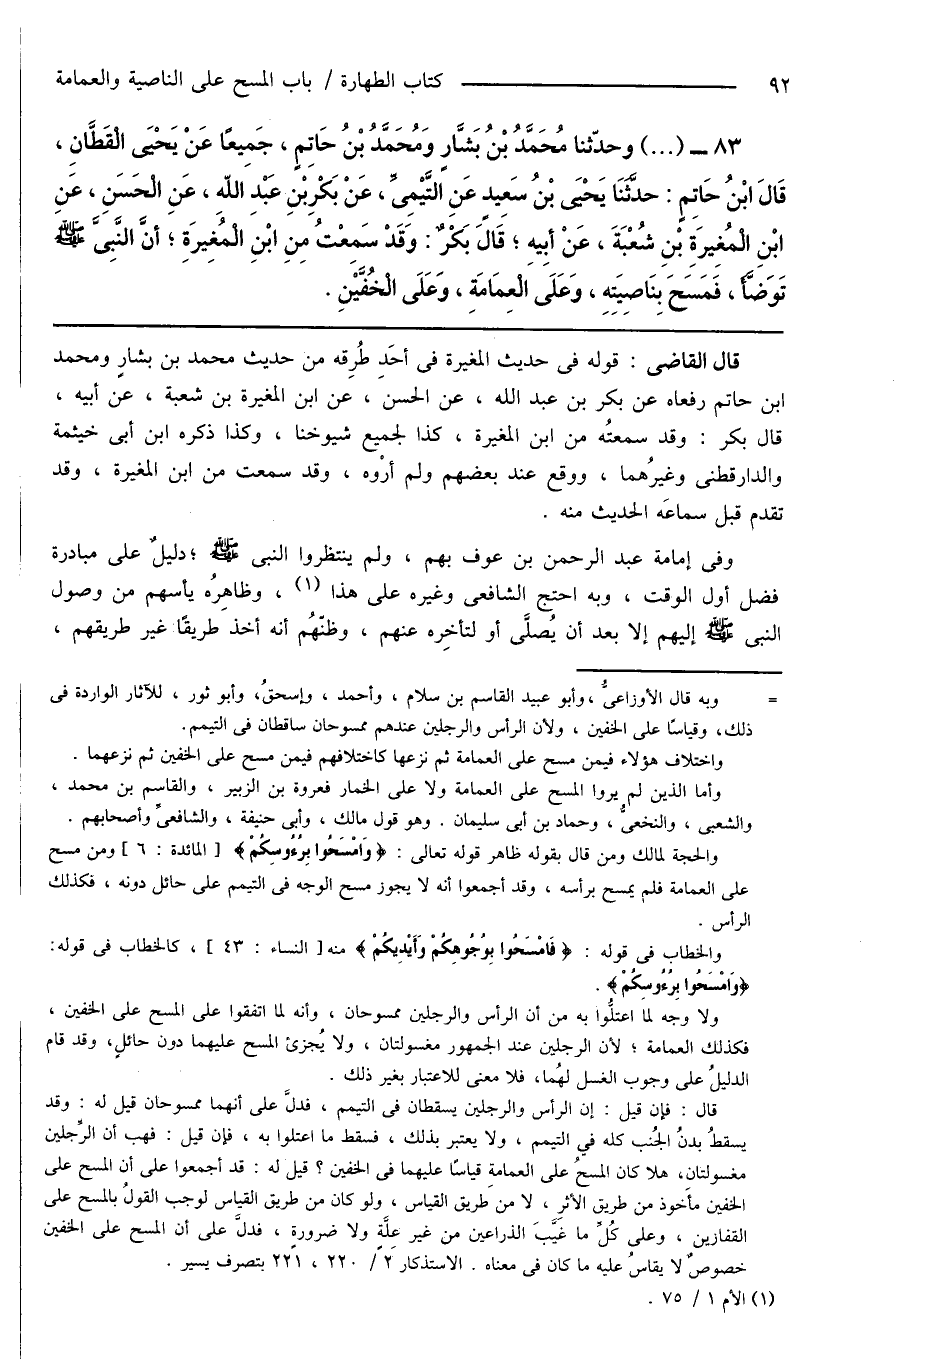 ٩٢ ــــــــــ كتاب الطهارة / باب المسح على الناصية والعمامة
٨٣ ــ (...) وحدّثنا مُحَمَّدُ بْنُ بَشَّارٍ وَمُحَمَّدُ بْنُ حَاتِمٍ ، جَمِيعًا عَنْ يَحْيَى الْقَطَّانِ ،
قَالَ ابْنُ حَاتِمٍ : حدَّثَنَا يَحْيَى بْنُ سَعِيدٍ عَنِ التَّيْمِىِّ ، عَنْ بَكْرِ بْنِ عَبْدِ اللّهِ ، عَنِ الْحَسَنِ ، عَنِ
ابْنِ الْمُغِيرَةِ بْنِ شُعْبَةَ ، عَنْ أَبِيهِ ؛ قَالَ بَكْرٌ : وَقَدْ سَمِعْتُ مِنِ ابْنِ الْمُغِيرَةِ ؛ أنَّ النَّبِىَّ ﷺ
تَوَضَّأَ ، فَمَسَحَ بِنَاصِيَتِهِ ، وَعَلَى الْعِمَامَةِ ، وَعَلَى الْخُفَّيْنِ .
قال القاضى : قوله فى حديث المغيرة فى أحَدِ طُرِقه من حديث محمد بن بشارٍ ومحمد
ابن حاتم رفعاه عن بكر بن عبد الله ، عن الحسن ، عن ابن المغيرة بن شعبة ، عن أبيه ،
قال بكر : وقد سمعتُه من ابن المغيرة ، كذا لجميع شيوخنا ، وكذا ذكره ابن أبى خيثمة
والدارقطنى وغيرُهما ، ووقع عند بعضهم ولم أرْوه ، وقد سمعت من ابن المغيرة ، وقد
تقدم قبل سماعَه الحديث منه .
وفى إمامة عبد الرحمن بن عوف بهم ، ولم ينتظروا النبى ﷺ ؛دليلٌ على مبادرة
فضل أول الوقت ، وبه احتج الشافعى وغيره على هذا (١) ، وظاهرُه يأسهم من وصول
النبى ﷺ إليهم إلا بعد أن يُصلَّى أو لتأخِره عنهم ، وظنّهُم أنه أخذ طريقًا غير طريقهم ،
= وبه قال الأوزاعىُّ ،وأبو عبيد القاسم بن سلام ، وأحمد ، وإسحقُ، وأبو ثور ، للآثار الواردة فى
ذلك، وقياسًا على الخفين ، ولأن الرأس والرجلين عندهم ممسوحان ساقطان فى التيمم.
واختلاف هؤلاء فيمن مسح على العمامة ثم نزعها كاختلافهم فيمن مسح على الخفين ثم نزعهما .
وأما الذين لم يروا المسح على العمامة ولا على الخمار فعروة بن الزبير ، والقاسم بن محمد ،
والشعبى ، والنخعىُّ ، وحماد بن أبى سليمان . وهو قول مالك ، وأبى حنيفة ، والشافعىِّ وأصحابهم .
والحجة لمالك ومن قال بقوله ظاهر قوله تعالى : ﴿ وَامْسَحُوا بِرُءُوسِكُمْ ﴾ [ المائدة : ٦ ] ومن مسح
على العمامة فلم يمسح برأسه ، وقد أجمعوا أنه لا يجوز مسح الوجه فى التيمم على حائل دونه ، فكذلك
الرأس .
والخطاب فى قوله : ﴿ فَامْسَحُوا بِوُجُوهِكُمْ وَأَيْدِيكُمْ ﴾ منه[ النساء : ٤٣ ] ، كالخطاب فى قوله:
﴿وَامْسَحُوا بِرُءُوسِكُمْ﴾ .
ولا وجه لما اعتلُّوا به من أن الرأس والرجلين ممسوحان ، وأنه لما اتفقوا على المسح على الخفين ،
فكذلك العمامة ؛ لأن الرجلين عند الجمهور مغسولتان ، ولا يُجزئ المسح عليهما دون حائلٍ، وقد قام
الدليلُ على وجوب الغسل لهُما، فلا معنى للاعتبار بغير ذلك .
قال : فإن قيل : إن الرأس والرجلين يسقطان فى التيمم ، فدلَّ على أنهما ممسوحان قيل له : وقد
يسقطُ بدنُ الجُنب كله في التيمم ، ولا يعتبر بذلك ، فسقط ما اعتلوا به ، فإن قيل : فهب أن الرِّجلين
مغسولتان، هلا كان المسحُ على العمامة قياسًا عليهما فى الخفين ؟ قيل له : قد أجمعوا على أن المسح على
الخفين مأخوذ من طريق الأثر ، لا من طريق القياس ، ولو كان من طريق القياس لوجب القولُ بالمسح على
القفازين ، وعلى كُلِّ ما غيَّبَ الذراعين من غير علَّةٍ ولا ضرورةٍ ، فدلَّ على أن المسح على الخفين
خصوصٌ لا يقاسُ عليه ما كان فى معناه . الاستذكار ٢/ ٢٢٠ ، ٢٢١ بتصرف يسير .
(١) الأم ١ / ٧٥ .